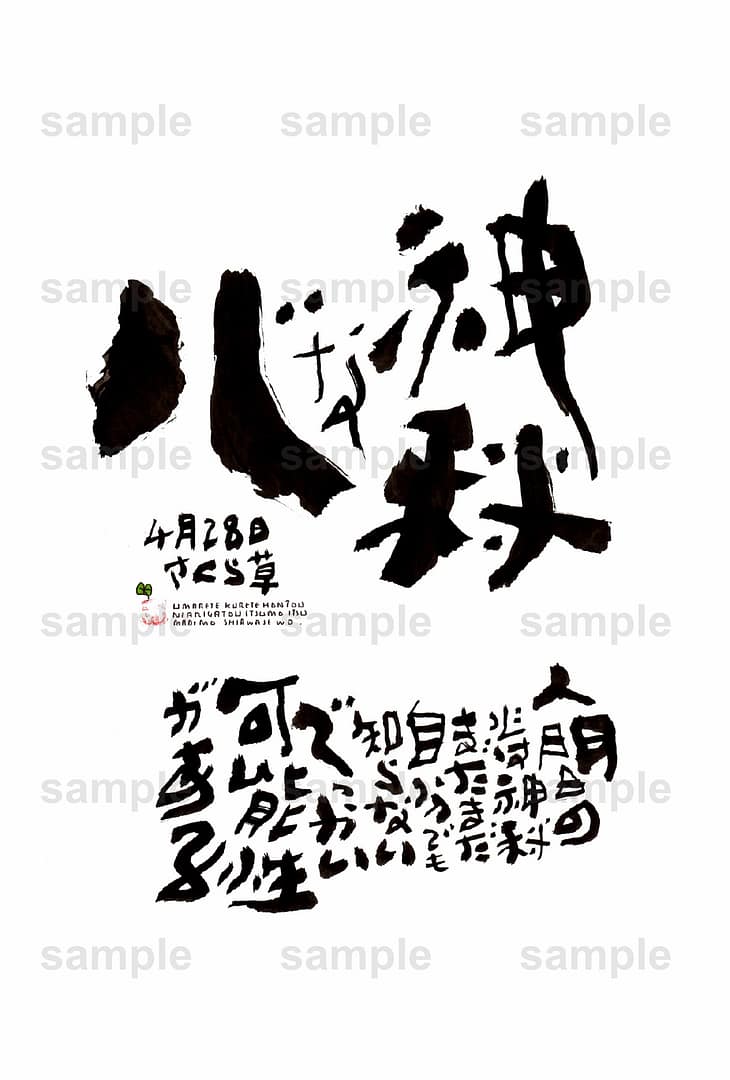 sample sample sample
sample sample sample
神秘な
心
sample sample sample
4月28日
さくら草
UMARETE KURETE HONTOU
NI ARIGATOU ITSUMO ITSU
MADEMO SHIAWASE WO.
sample sample sample
人間の
心は神秘
まだまだ
自分でも
知らない
でっかい
可能性
がある
sample sample sample
sample sample sample